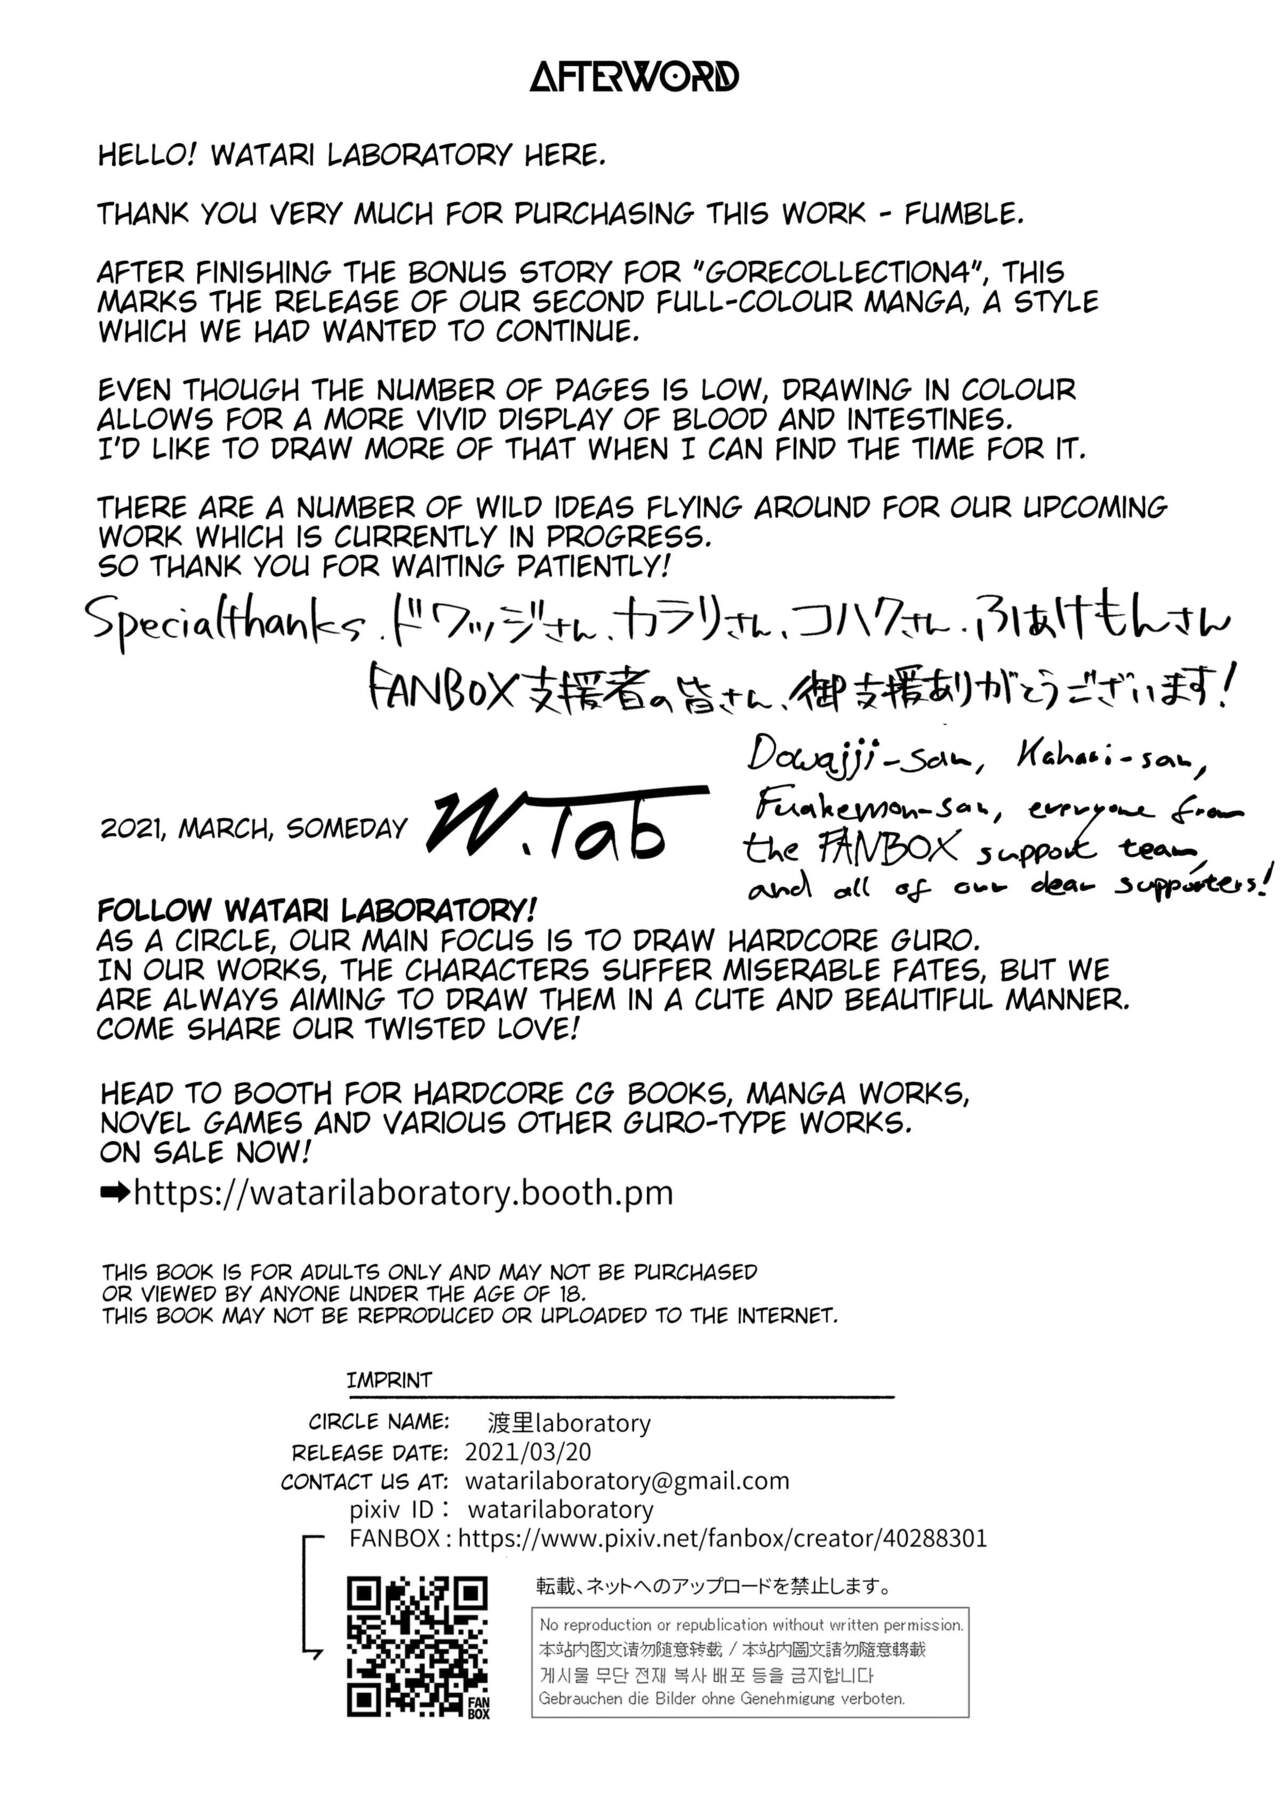 AFTERWORD
HELLO! WATARI LABORATORY HERE.
THANK YOU VERY MUCH FOR PURCHASING THIS WORK - FUMBLE.
AFTER FINISHING THE BONUS STORY FOR "GORECOLLECTION4", THIS
MARKS THE RELEASE OF OUR SECOND FULL-COLOUR MANGA, A STYLE
WHICH WE HAD WANTED TO CONTINUE.
EVEN THOUGH THE NUMBER OF PAGES IS LOW, DRAWING IN COLOUR
ALLOWS FOR A MORE VIVID DISPLAY OF BLOOD AND INTESTINES.
I'D LIKE TO DRAW MORE OF THAT WHEN I CAN FIND THE TIME FOR IT.
THERE ARE A NUMBER OF WILD IDEAS FLYING AROUND FOR OUR UPCOMING
WORK WHICH IS CURRENTLY IN PROGRESS.
SO THANK YOU FOR WAITING PATIENTLY!
Specialthanks、ドワッジさん、カラリさん、コハクさん、ふあけもんさん
FANBOX支援者の皆さん、御支援ありがとうございます!
Dowajji-san, Kahari-san,
Fuakemon-san, everyone from
the FANBOX support team,
and all of our dear supporters!
2021, MARCH, SOMEDAY
W.lab
FOLLOW WATARI LABORATORY!
AS A CIRCLE, OUR MAIN FOCUS IS TO DRAW HARDCORE GURO.
IN OUR WORKS, THE CHARACTERS SUFFER MISERABLE FATES, BUT WE
ARE ALWAYS AIMING TO DRAW THEM IN A CUTE AND BEAUTIFUL MANNER.
COME SHARE OUR TWISTED LOVE!
HEAD TO BOOTH FOR HARDCORE CG BOOKS, MANGA WORKS,
NOVEL GAMES AND VARIOUS OTHER GURO-TYPE WORKS.
ON SALE NOW!
➡https://watarilaboratory.booth.pm
THIS BOOK IS FOR ADULTS ONLY AND MAY NOT BE PURCHASED
OR VIEWED BY ANYONE UNDER THE AGE OF 18.
THIS BOOK MAY NOT BE REPRODUCED OR UPLOADED TO THE INTERNET.
IMPRINT
CIRCLE NAME: 渡里laboratory
RELEASE DATE: 2021/03/20
CONTACT US AT: watarilaboratory@gmail.com
pixiv ID： watarilaboratory
FANBOX : https://www.pixiv.net/fanbox/creator/40288301
FAN
BOX
転載、ネットへのアップロードを禁止します。
No reproduction or republication without written permission.
本站内图文请勿随意转载 / 本站内圖文請勿隨意轉載
게시물 무단 전재 복사 배포 등을 금지합니다
Gebrauchen die Bilder ohne Genehmigung verboten.